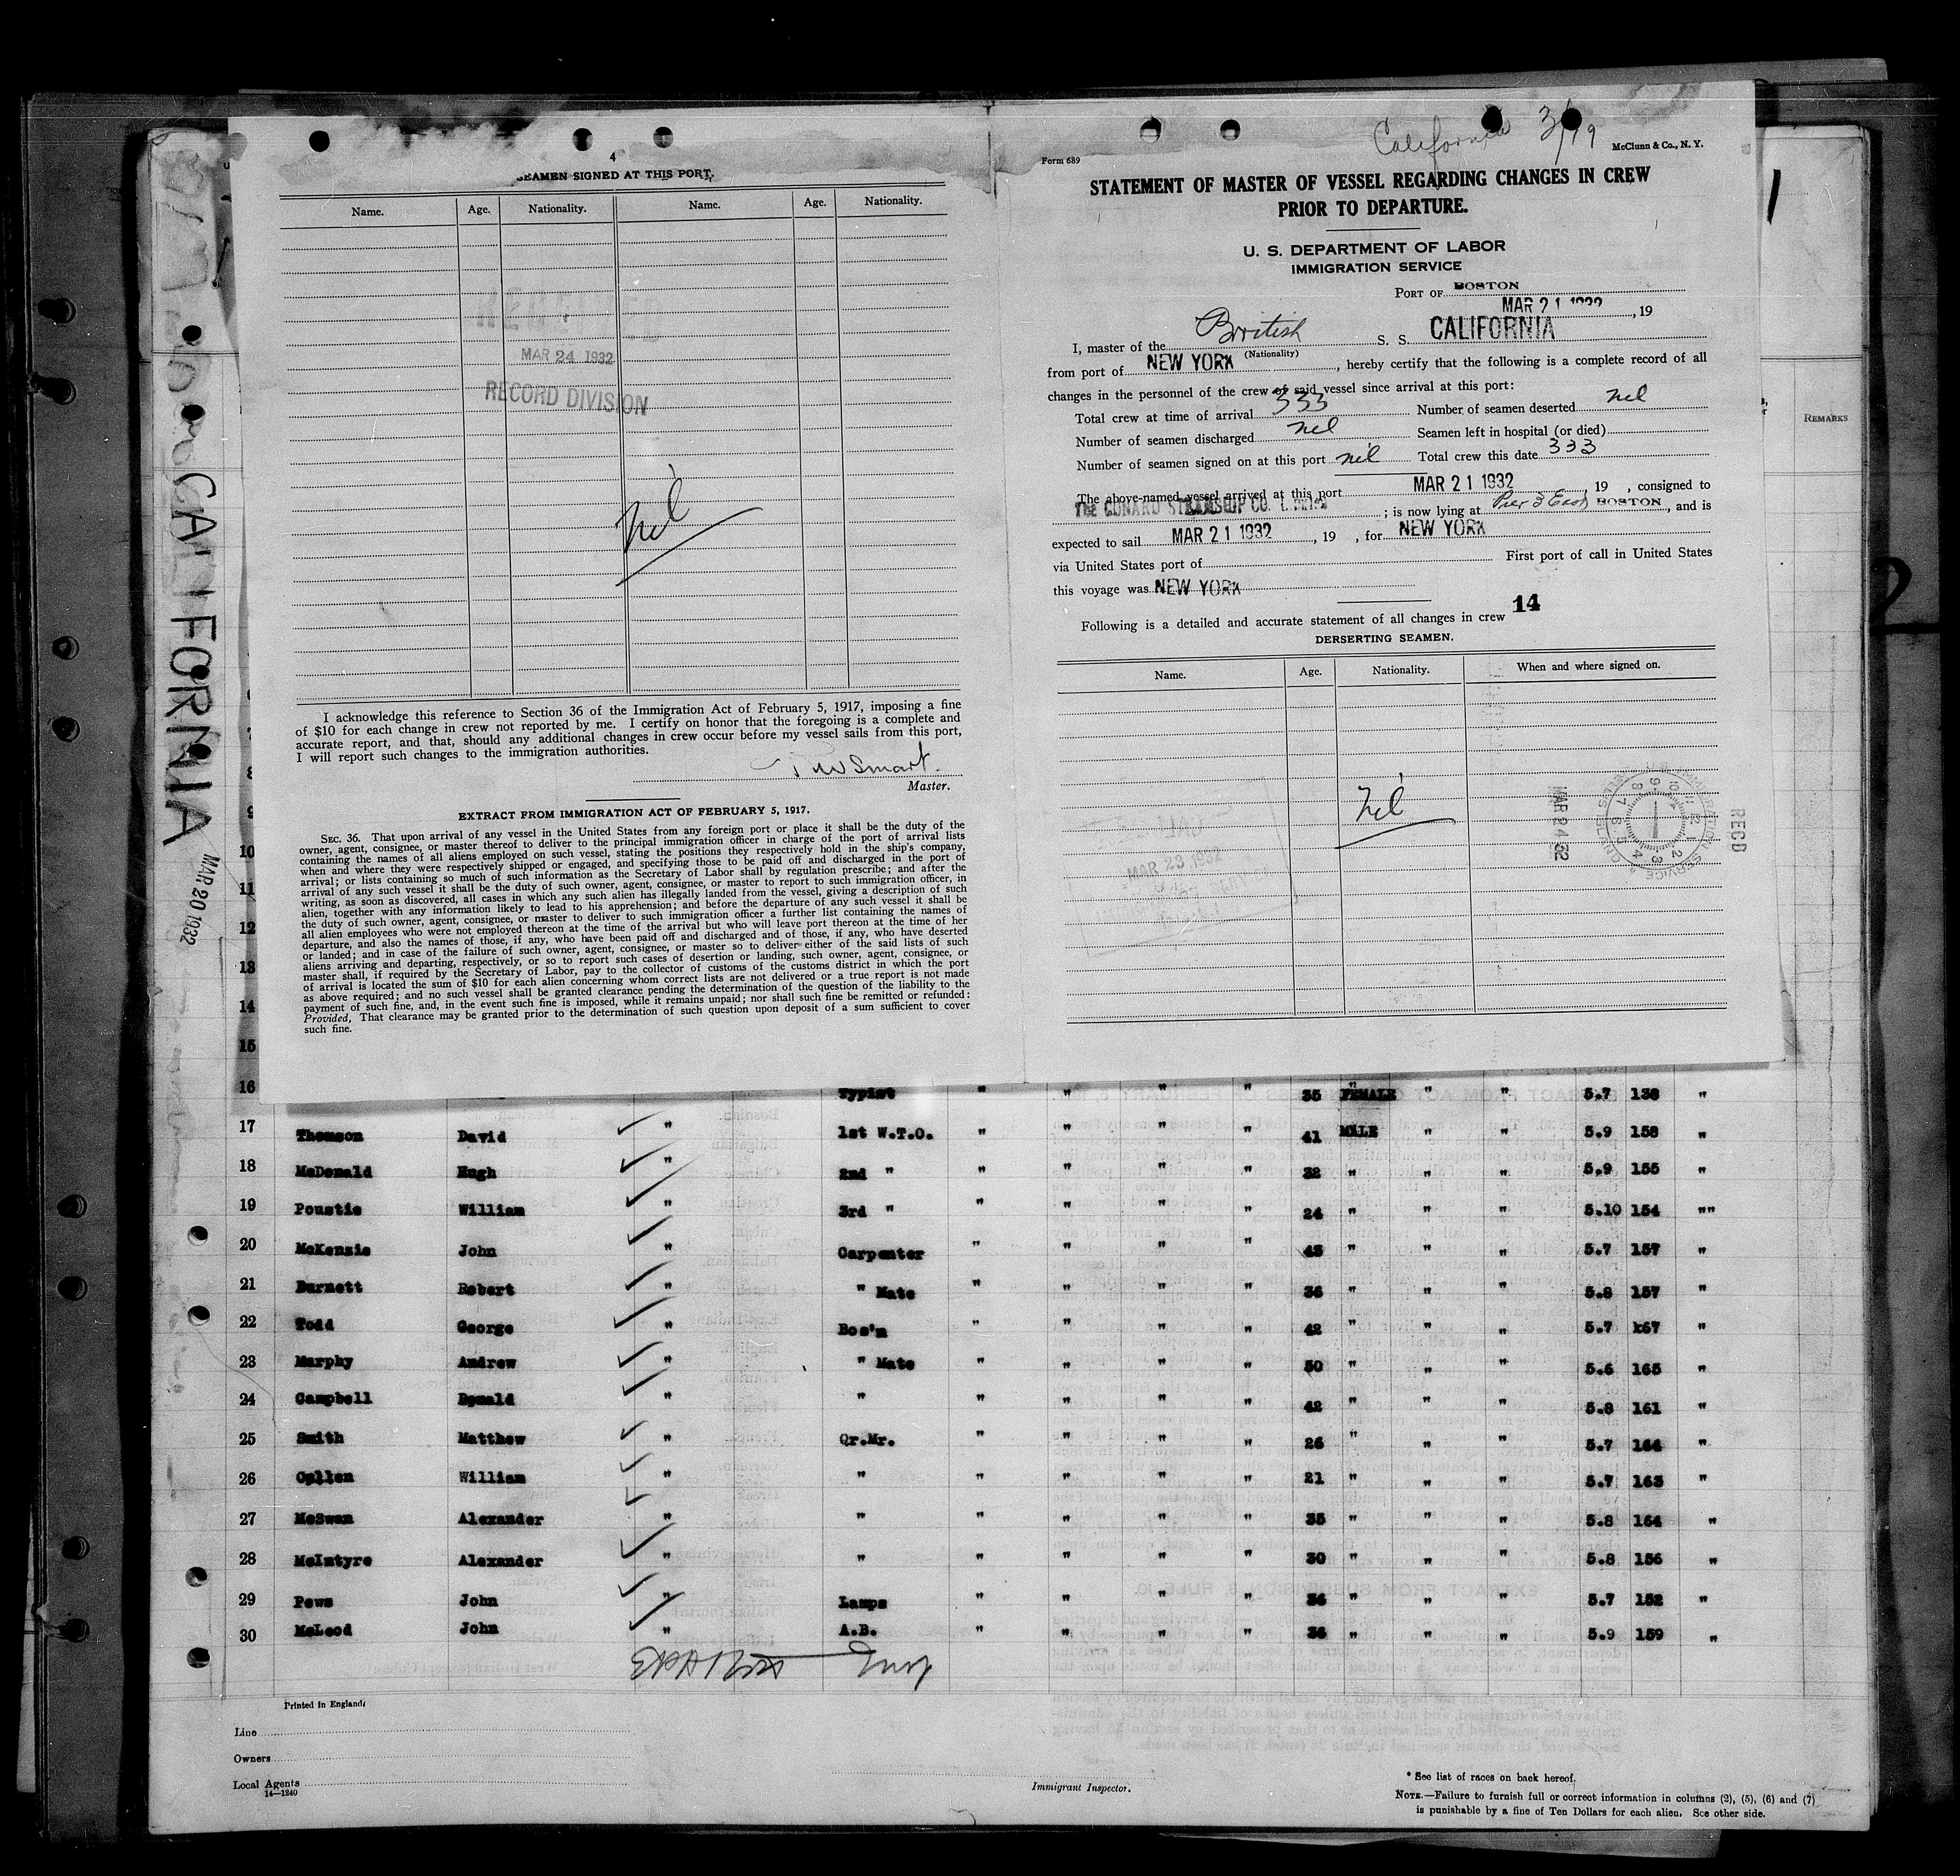 4
SEAMEN SIGNED AT THIS PORT.
Name. Age. Nationality. Name. Age. Nationality.
RECEIVED
MAR 24 1932
RECORD DIVISION
Nil
I acknowledge this reference to Section 36 of the Immigration Act of February 5, 1917, imposing a fine
of $10 for each change in crew not reported by me. I certify on honor that the foregoing is a complete and
accurate report, and that, should any additional changes in crew occur before my vessel sails from this port,
I will report such changes to the immigration authorities.
Smart.
Master.
EXTRACT FROM IMMIGRATION ACT OF FEBRUARY 5, 1917.
SEC. 36. That upon arrival of any vessel in the United States from any foreign port or place it shall be the duty of the
owner, agent, consignee, or master thereof to deliver to the principal immigration officer in charge of the port of arrival lists
containing the names of all aliens employed on such vessel, stating the positions they respectively hold in the ship's company,
when and where they were respectively shipped or engaged, and specifying those to be paid off and discharged in the port of
arrival; or lists containing so much of such information as the Secretary of Labor shall by regulation prescribe; and after the
arrival of any such vessel it shall be the duty of such owner, agent, consignee, or master to report to such immigration officer, in
writing, as soon as discovered, all cases in which any such alien has illegally landed from the vessel, giving a description of such
alien, together with any information likely to lead to his apprehension; and before the departure of any such vessel it shall be
the duty of such owner, agent, consignee, or master to deliver to such immigration officer a further list containing the names of
all alien employees who were not employed thereon at the time of the arrival but who will leave port thereon at the time of her
departure, and also the names of those, if any, who have been paid off and discharged and of those, if any, who have deserted
or landed; and in case of the failure of such owner, agent, consignee, or master so to deliver either of the said lists of such
aliens arriving and departing, respectively, or so to report such cases of desertion or landing, such owner, agent, consignee, or
master shall, if required by the Secretary of Labor, pay to the collector of customs of the customs district in which the port
of arrival is located the sum of $10 for each alien concerning whom correct lists are not delivered or a true report is not made
as above required; and no such vessel shall be granted clearance pending the determination of the question of the liability to the
payment of such fine, and, in the event such fine is imposed, while it remains unpaid; nor shall such fine be remitted or refunded:
Provided, That clearance may be granted prior to the determination of such question upon deposit of a sum sufficient to cover
such fine.
California 3/19
Form 689
McClunn & Co., N. Y.
STATEMENT OF MASTER OF VESSEL REGARDING CHANGES IN CREW
PRIOR TO DEPARTURE.
U. S. DEPARTMENT OF LABOR
IMMIGRATION SERVICE
PORT OF BOSTON
MAR 21 1932, 19
I, master of the British S. S. CALIFORNIA
(Nationality)
from port of NEW YORK, hereby certify that the following is a complete record of all
changes in the personnel of the crew of said vessel since arrival at this port:
Total crew at time of arrival 333 Number of seamen deserted nil
Number of seamen discharged nil Seamen left in hospital (or died)
Number of seamen signed on at this port nil Total crew this date 333
The above-named vessel arrived at this port MAR 21 1932, 19 , consigned to
THE CUNARD STEAMSHIP CO. ; is now lying at Pier 3 East BOSTON, and is
expected to sail MAR 21 1932, 19 , for NEW YORK
via United States port of First port of call in United States
this voyage was NEW YORK
Following is a detailed and accurate statement of all changes in crew 14
DERSERTING SEAMEN.
Name. Age. Nationality. When and where signed on.
Nil
MAR 23 1932
MAR 24 32
REC'D
REMARKS
1
2
CALIFORNIA
MAR 20 1932
8
9
10
11
12
13
14
15
16 Typist " " " " 35 FEMALE " " 5.7 138 "
17 Thomson David " 1st W.T.O. " " " " 41 MALE " " 5.9 158 "
18 McDonald Hugh " 2nd " " " " " 32 " " " 5.9 155 "
19 Poustie William " 3rd " " " " " 24 " " " 5.10 154 ""
20 McKenzie John " Carpenter " " " " 43 " " " 5.7 157 "
21 Burnett Robert " " Mate " " " " 36 " " " 5.8 157 "
22 Todd George " Bos'n " " " " 42 " " " 5.7 167 "
23 Murphy Andrew " " Mate " " " " 50 " " " 5.6 165 "
24 Campbell Donald " " " " " " 42 " " " 5.8 161 "
25 Smith Matthew " Qr.Mr. " " " " 26 " " " 5.7 164 "
26 Cullen William " " " " " " 21 " " " 5.7 163 "
27 McSwan Alexander " " " " " " 35 " " " 5.8 164 "
28 McIntyre Alexander " " " " " " 30 " " " 5.8 156 "
29 Pews John " Lamps " " " " 36 " " " 5.7 152 "
30 McLeod John " A.B. " " " " 36 " " " 5.9 159 "
Printed in England
Line
Owners
Local Agents
14—1240
Immigrant Inspector.
* See list of races on back hereof.
NOTE.—Failure to furnish full or correct information in columns (2), (5), (6) and (7)
is punishable by a fine of Ten Dollars for each alien. See other side.